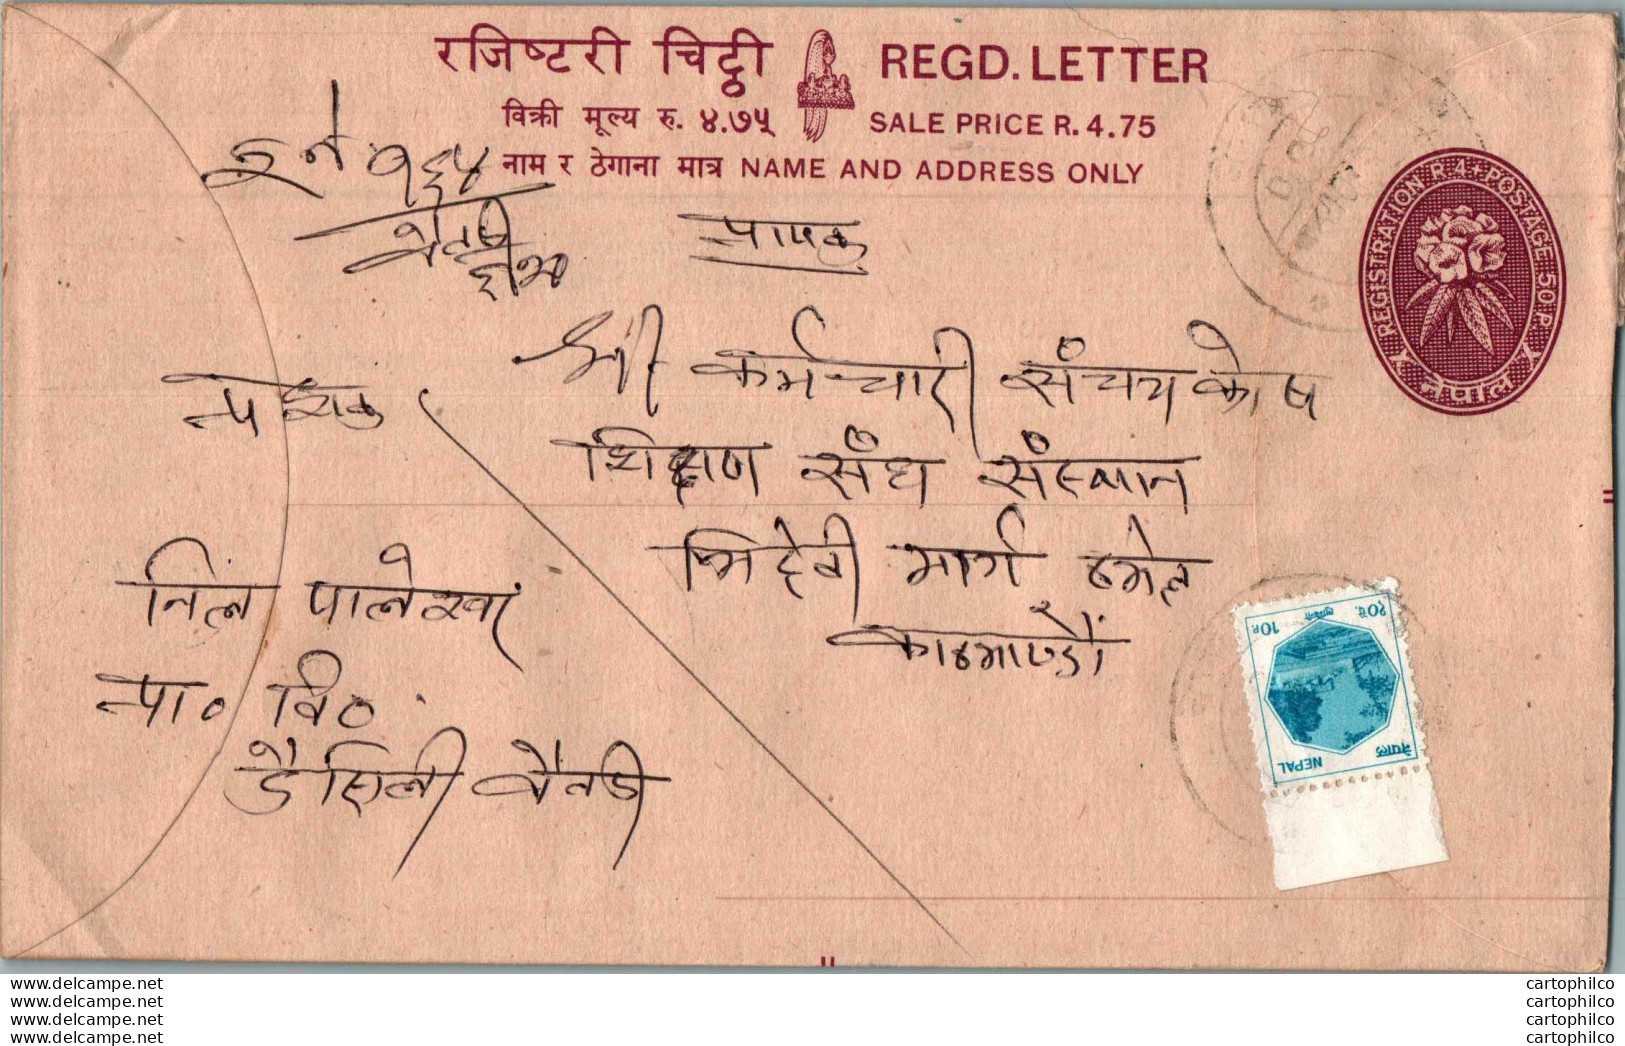 रजिष्टरी चिट्ठी REGD. LETTER
विक्री मूल्य रु. ४.७५ SALE PRICE R. 4.75
नाम र ठेगाना मात्र NAME AND ADDRESS ONLY
REGISTRATION R 4 + POSTAGE 50 P.
नेपाल
१६४
प्रापक
श्री कर्मचारी संचय कोष
शिक्षण संघ संस्थान
त्रिदेवी मार्ग ठमेल
काठमाण्डौं
प्रेषक
पालेखा
वि०
वैतडी
१० पै. 10P
नेपाल NEPAL
www.delcampe.net
www.delcampe.net
www.delcampe.net
www.delcampe.net
cartophilco
cartophilco
cartophilco
cartophilco